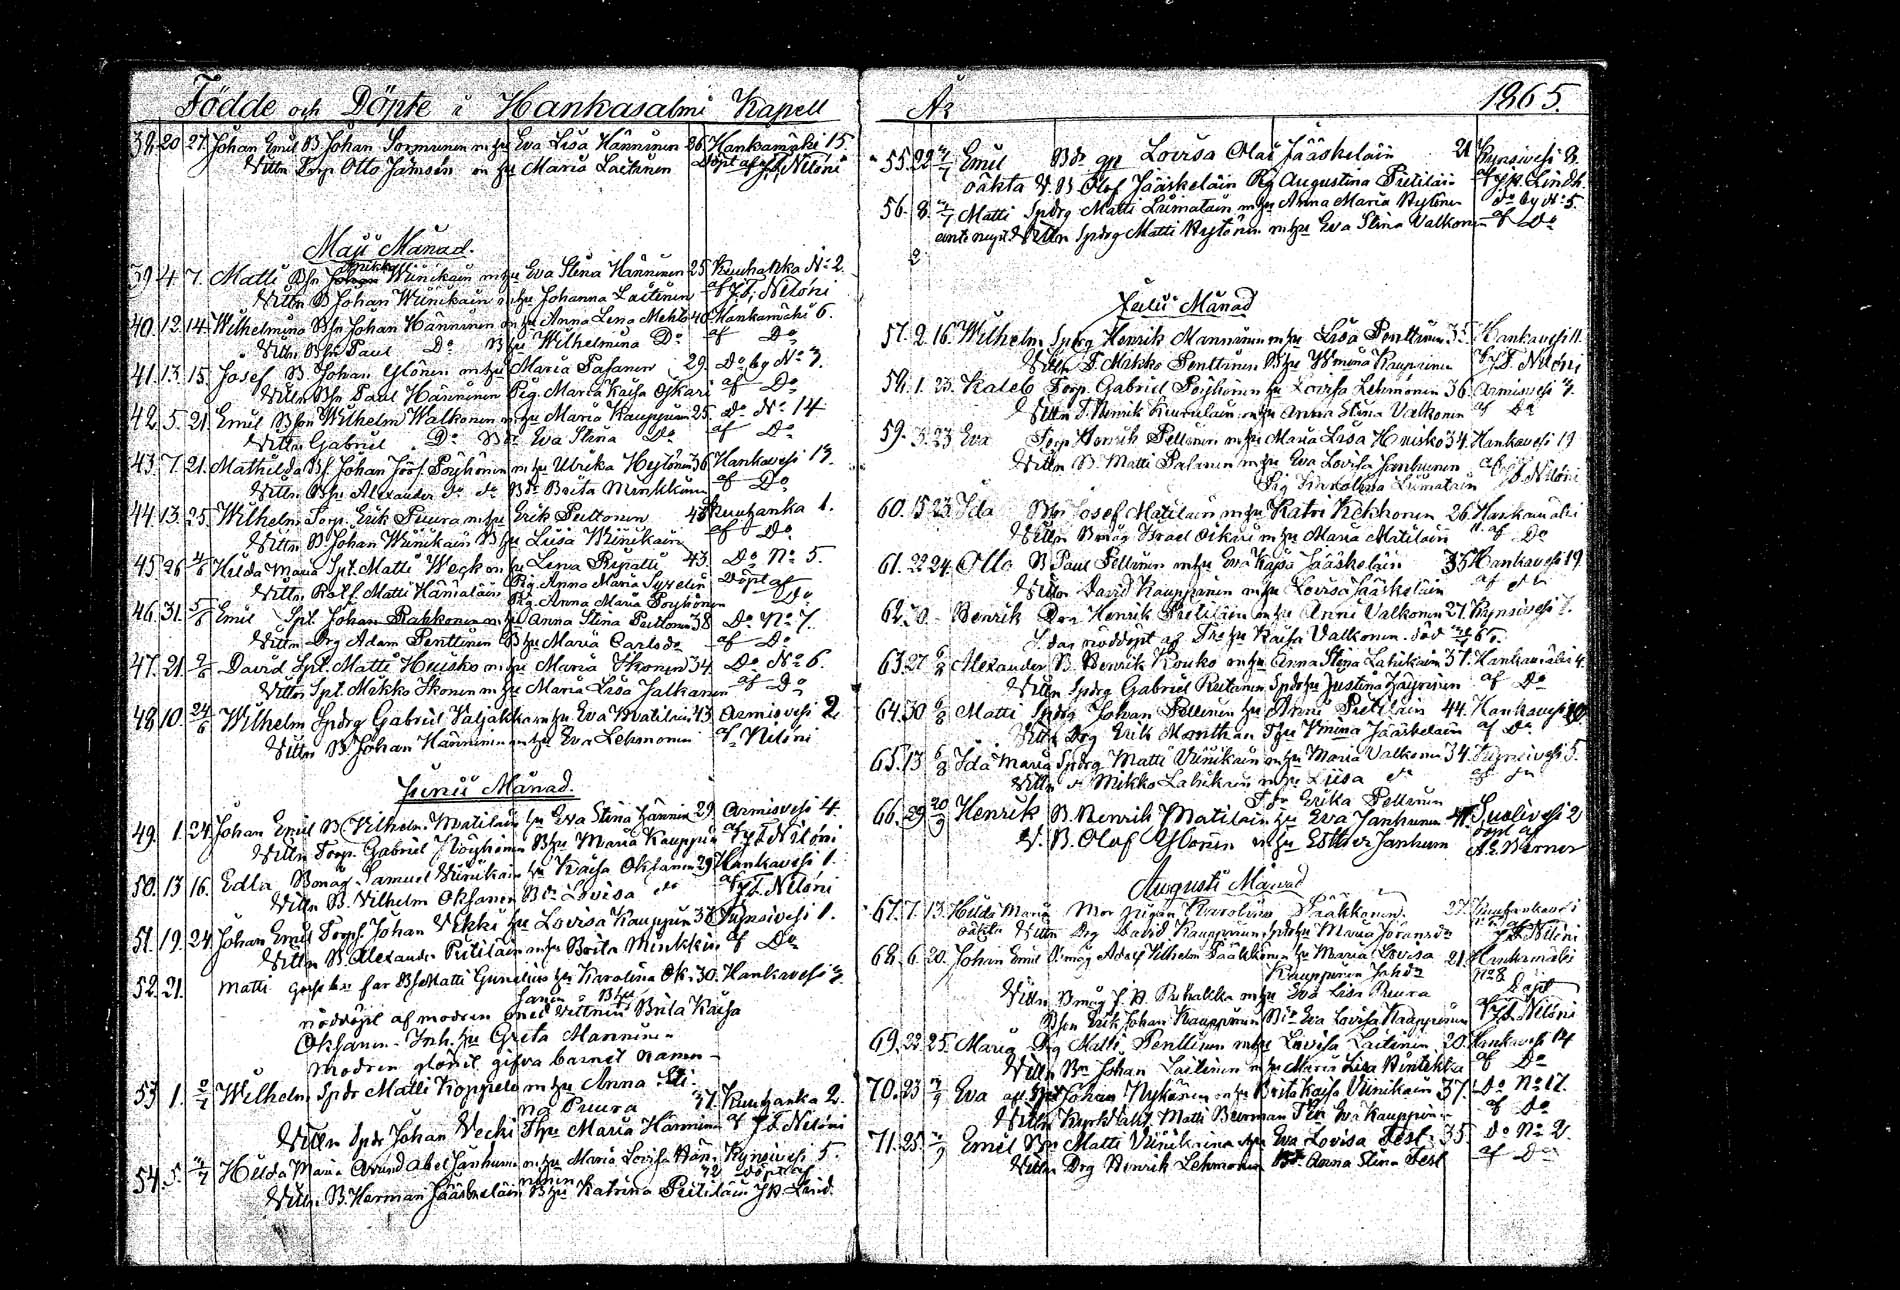 Födde och Döpte i Hankasalmi Kapell
38. 20 27. Johan Emil B Johan Sormunen m hu Eva Lisa Hänninen 26. Hankamäki 15.
Vittn Torp. Otto Jämsén m hu Maria Laitinen Döpt af J.T. Niloni
Maji Månad.
39. 4. 7. Matti Bsn Wiinikain m hu Eva Stina Hänninen 25 Kuuhanka No 2.
Vittn B Johan Wiinikain m hu Johanna Laitinen af J.T. Niloni
40. 12. 14. Wilhelmina Bsn Johan Hänninen m hu Anna Lena Mehto 40. Hankamäki 6.
Vittn Bsn Paul Do B hu Wilhelmina Do af Do
41. 13. 15. Josef B. Johan Ylönen m hu Maria Pasanen 29. Do by No 7.
Vittn Bsn Paul Hänninen Pig. Maria Kaisa Oikari af Do
42. 5. 21 Emil Bson Wilhelm Walkonen m hu Maria Kauppinen 25. Do No 14
Vittn Gabriel Do Eva Stina Do af Do
43. 7. 21. Mathilda Johan Josf Pöyhönen m hu Ulrika Heytönen 36 Hankavesi 17.
Vittn Bsn Alexander do do Brita Minkkinen af Do
44. 13. 25. Wilhelm Torp. Erik Puura m hu Puttonen 43 Kuuhanka 1.
Vittn B. Johan Wiinikain B hu Liisa Wiinikain af Do
45 26 4/6 Hilda Maria Spt. Matti Weck m hu Lena Ripatti 43. Do No 5.
Vittn Matti Hämäläin Pig. Anna Maria Döpt af
46. 31. 5/6 Emil Spt. Johan Pakkonen m hu Anna Stina Puttonen 38 Do No 7.
Pig. Anna Maria Pöyhönen Do
Vittn Drg Adam Penttinen B hu Maria Carlsdr af Do
47. 21. David Spt. Matti Huisko m hu Maria Ikonen 34. Do No 6.
Vittn Spt. Mikko Ikonen m hu Maria Lisa Jalkanen af Do
48 10. 24/6 Wilhelm Spdrg Gabriel Valjakka m hu Eva Matilain 43. Armisvesi 2
Vittn B. Johan Hänninen m hu Eva Lehmonen af Niloni
Junii Månad.
49. 1. 24. Johan Emil B Vilhelm Matilain hu Eva Stina Hännin 29. Armisvesi 4
Vittn Torp. Gabriel Pöyhönen B hu Maria Kauppin af J.T. Niloni
50. 13 16. Edla Bmåg Samuel Viinikain hu Kaisa Oksanen 29 Hankavesi 1.
Vittn B. Vilhelm Oksanen Lovisa do af J.T. Niloni
51. 19. 24. Johan Emil Johan Vekki hu Lovisa Kauppin Kynsivesi 1.
Vittn B. Alexander Pietiläin m hu Brita Minkkin af Do
52. 21. Matti far Matti Gunelius hu Karolina Ok- 30. Hankavesi 7.
sanen B hu
nöddöpt af modren med vittnen Brita Kaisa
Oksanen - Inh. hu Greta Manninen -
modren glömt gifva barnet namn -
53 1. 2/7 Wilhelm Spdr Matti Koppelo m hu Anna Sti-
na Puura 37. Kuuhanka 2.
Vittn Spdr Johan Vecki hu Maria Hännin af J.T. Niloni
54. 5. Hilda Maria Abel Janhun m hu Maria Lovisa Hän- Kynsivesi 5.
ninen 42 döpt af
Vittn B. Herman Jääskeläin B hu Katrina Pietiläin J.H. Lind.
År 1865.
55. 22 Emil Lovisa Olai Jääskeläin 21 Kynsivesi 8.
oäkta V. B Olof Jääskeläin Pg Augustina Pietiläi- af J.H. Lindh.
56. 8. Matti Spdrg Matti Liimatain m hu Anna Maria Hytönen do by No 5.
Vittn Spdrg Matti Hytönen m hu Eva Stina Valkonen af Do
2
Julii Månad
57. 2. 16. Wilhelm Spdrg Henrik Manninen m hu Lisa Penttinen 35. Hankavesi 11.
Vittn T Mikko Penttinen B hu Vmina Kauppinen af J.T. Niloni
58. 1. 23. Kaleb Torp. Gabriel Pöyhönen hu Lovisa Lehmonen 36. Armisvesi 7.
Vittn T. Henrik m hu Anna Stina Valkonen af Do
59. 3. 23 Eva Torp Henrik Pellinen m hu Maria Lisa Huisko 34. Hankavesi 19
Vittn B. Matti Pasanen m hu Eva Lovisa Janhunen af
Pig Karolina Liimatain J.T. Niloni
60. 15 23. Ida Bsn Josef Matilain m hu Katri Kekkonen 26. Hankamäki
Vittn Bmåg Israel Oikari m hu Maria Matilain 11. af Do
61. 22 24. Otto B Paul Pellinen m hu Eva Kajsa Jääskeläin 35 Hankavesi 19.
Vittn David Kauppinen m hu Lovisa Jääskeläin af do
62. 30. - Henrik Drg Henrik Pietiläin m hu Anni Valkonen 27. Kynsivesi 7.
I dag nöddöpt af hu Kaisa Valkonen. död 65.
63. 27 6/8 Alexander B. Henrik Kouko m hu Anna Stina Lahikain 37. Hankamäki 4.
Vittn Spdrg Gabriel Rutanen Spdrhu Justina Häyrinen af Do
64. 30 6/8 Matti Spdrg Johan Pellinen hu Anni Pietiläin 44. Hankavesi
Vittn Drg Erik Manthan T hu Vmina Jääskeläin af Do
65. 13 6/8 Ida Maria Spdrg Matti Viinikain m hu Maria Valkonen 34. Kynsivesi 5.
Vittn do Mikko Lahikain m hu Liisa do af do
Erika Pellinen
66. 29 20/9 Henrik B. Henrik Matilain hu Eva Janhunen 41. Suolivesi 2
döpt af
V. B. Olof Ylönen m hu Esther Janhunen A.E. Berner
Augusti Månad
67. 7. 13. Hilda Maria Karolina Pääkkönen 27. Kuuhankavesi
oäkta Vittn Drg David Kauppinen Spdrhu Maria Göransdr J.T. Niloni
68. 6. 20. Johan Emil Bmåg Adolf Vilhelm Pääkkönen hu Maria Lovisa 21. Hankamäki
Kauppinen Johdr No 8
Vittn Bmåg J. A. Puhakka m hu Eva Lisa Puura Döpt
Bsen Erik Johan Kauppinen Eva Lovisa Kauppinen af J.T. Niloni
69. 22 25. Maria Drg Matti Penttinen m hu Lovisa Laitinen 20. Hankavesi 14
Vittn Bn Johan Laitinen m hu Maria Lisa Hintikka af Do
70. 23 Eva Johan Nykänen m hu Brita Kaisa Viinikain 37. Do No 17.
Vittn Matti Beerman Eva Kauppinen af Do
71. 25. Emil Bn Matti Viinikainen hu Eva Lovisa Fesl. 35 do No 2.
Vittn Drg Henrik Lehmonen Anna Stina Fesl af Do